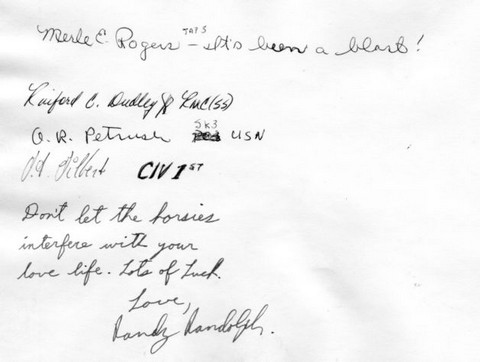 Merle E. Rogers TAPS – It's been a blast!
Raiford C. Dudley Jr RMC(SS)
O. R. Petrush SK3 USN
Gilbert CIV 1ST
Don't let the horsies
interfere with your
love life. Lots of Luck.
Love,
Randy Randolph.